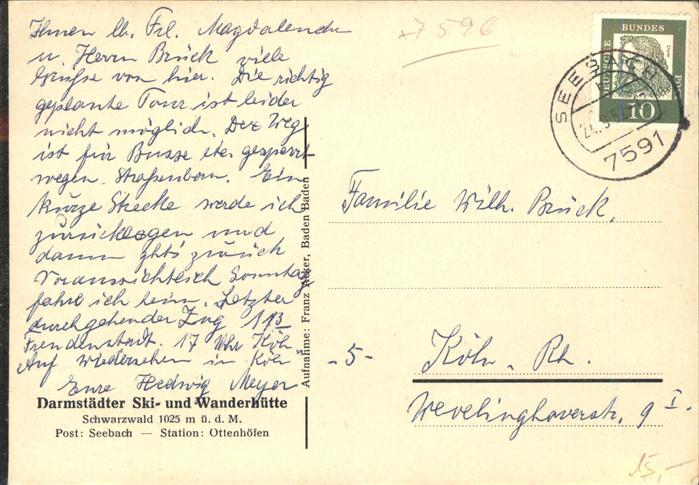 Ihnen lb. Frl. Magdalende
u. Herrn Brück viele
Grüsse von hier. Die richtig
geplante Tour ist leider
nicht möglich. Der Weg
ist für Busse etc. gesperrt
wegen Straßenbau. Ein
kurze Strecke werde ich
zurücklegen und
dann ghts zurück
Voraussichtlich Sonntag
fahre ich heim. Letzter
durchgehender Zug 11
Freudenstadt. 17 Uhr Köln
Auf Wiedersehen in Köln
Eure Hedwig Meyer
Darmstädter Ski- und Wanderhütte
Schwarzwald 1025 m ü. d. M.
Post: Seebach — Station: Ottenhöfen
Aufnahme: Franz Acker, Baden Baden
+7596
DEUTSCHE BUNDESPOST
10
SEEBACH
7591
Familie Wilh. Brück,
-5- Köln - Rh.
Wevelinghoverstr. 9 I.
15,-